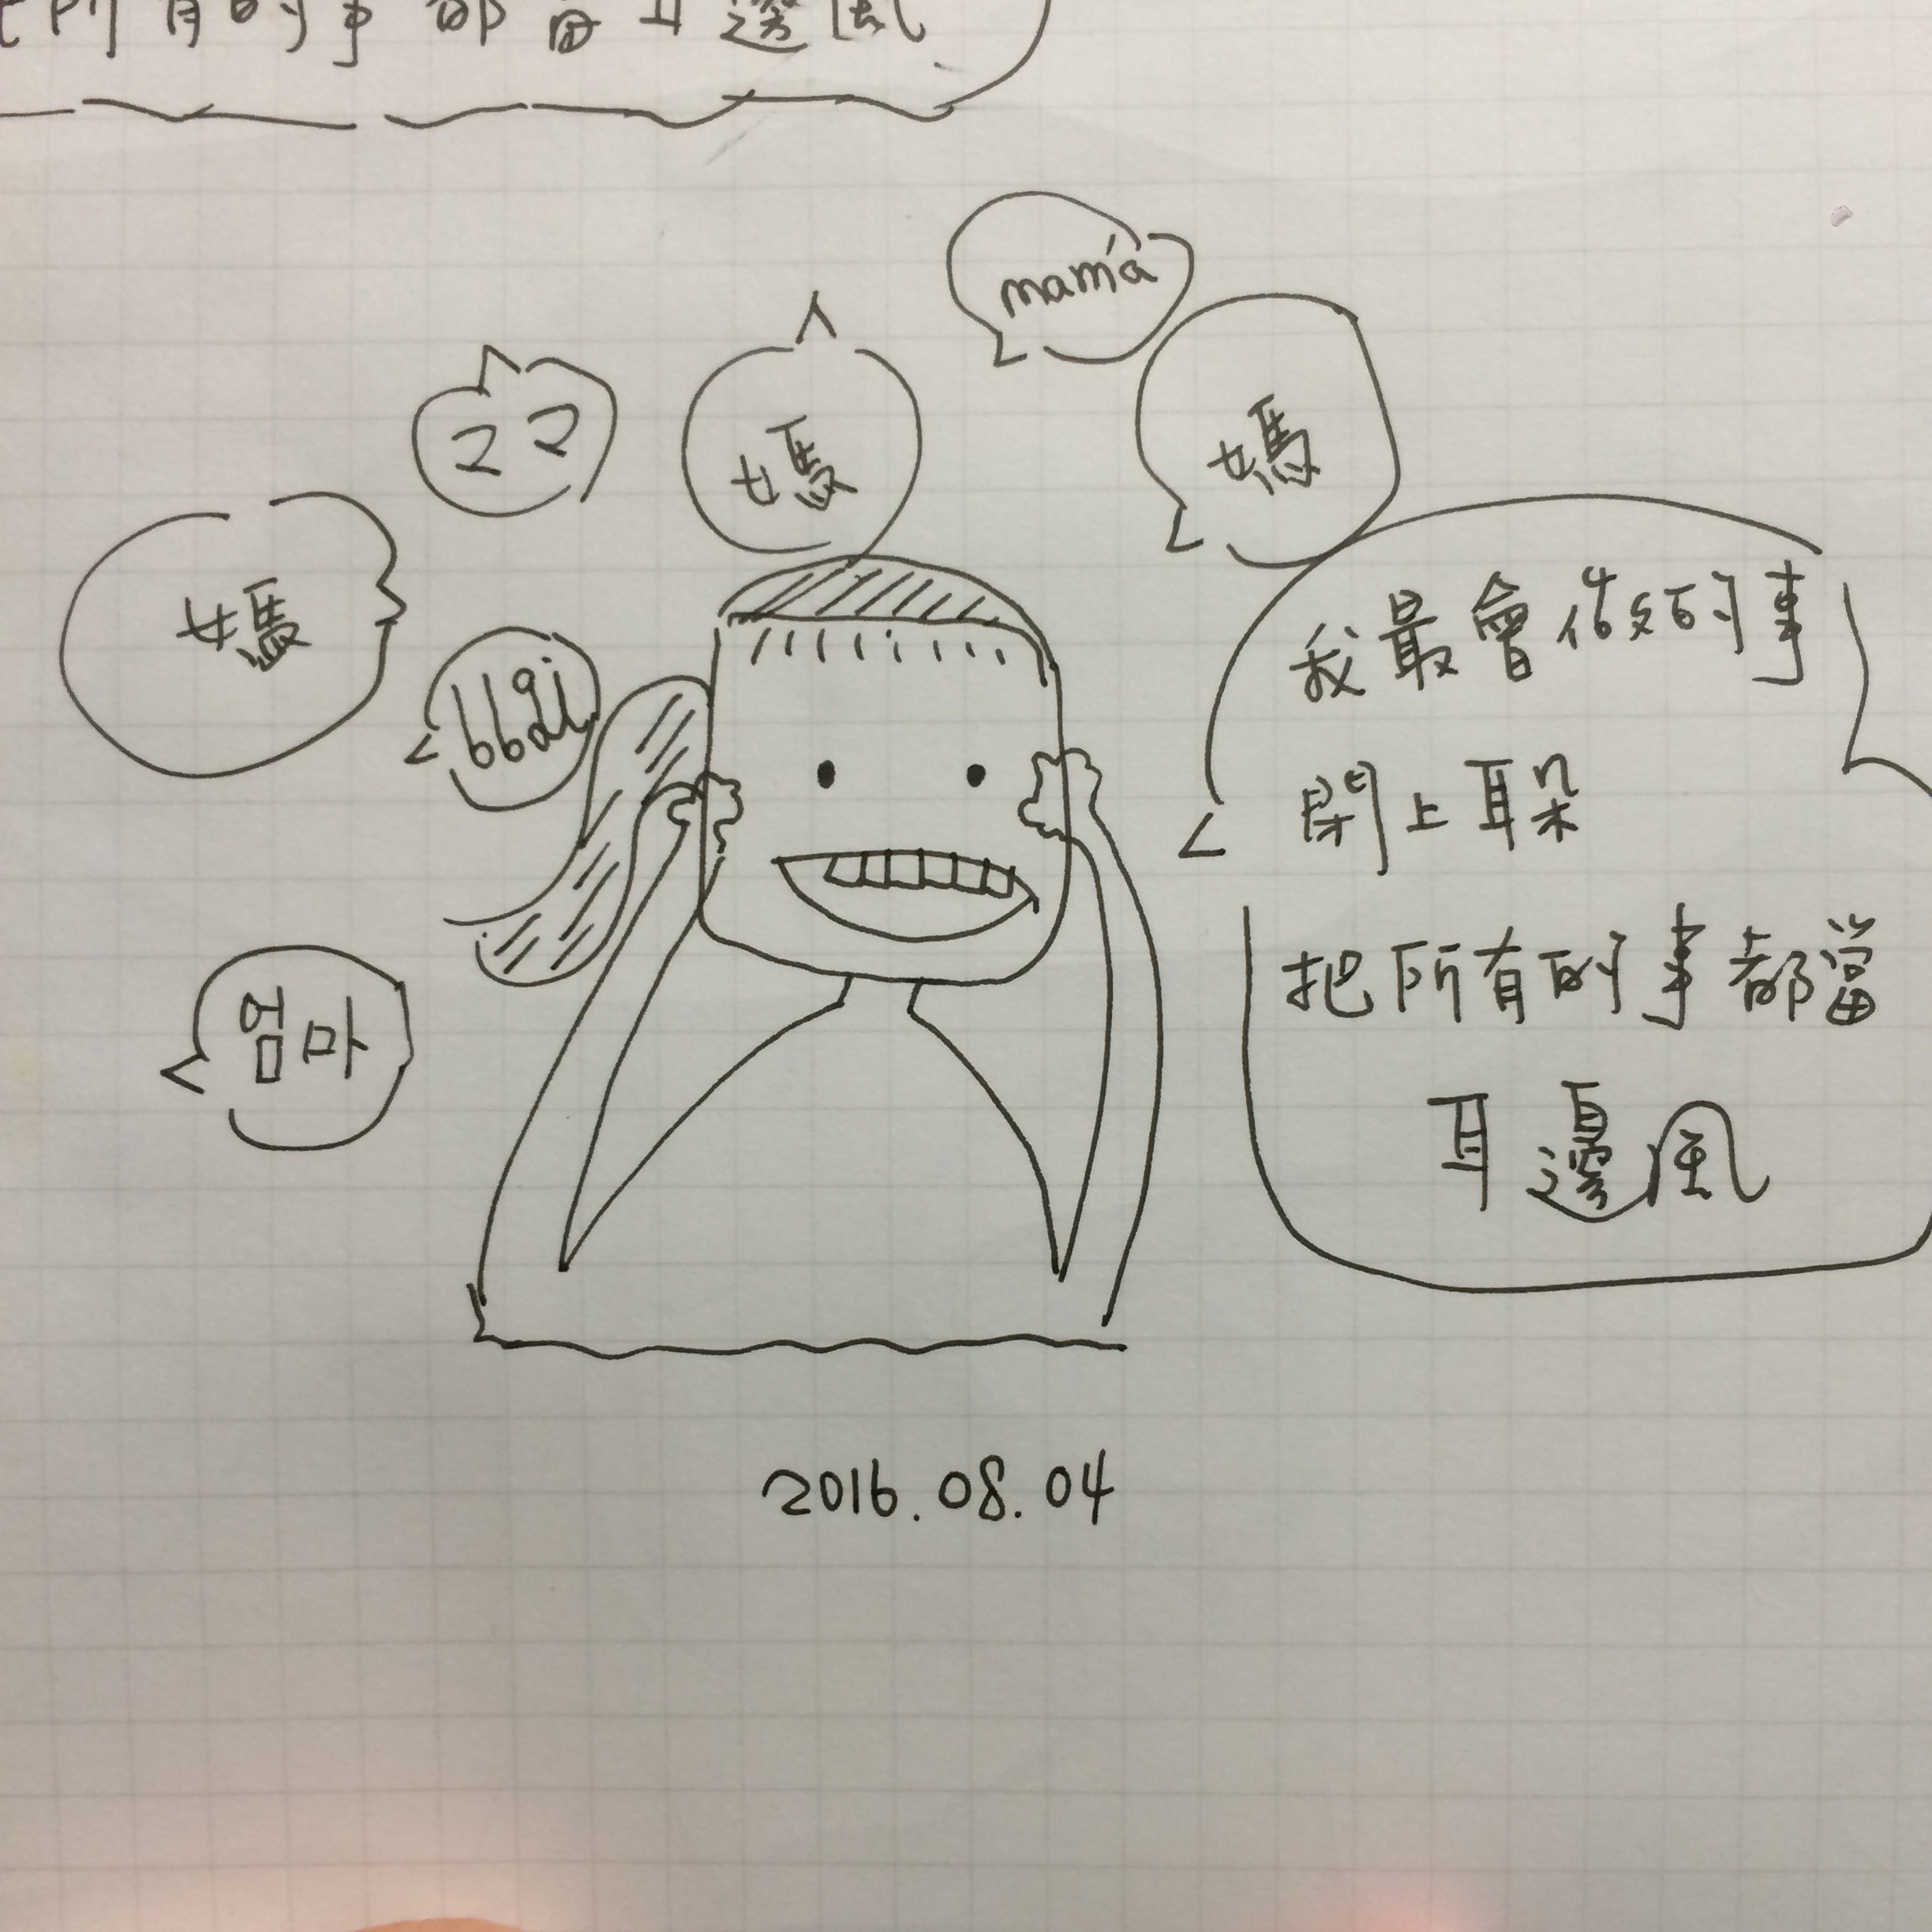 把所有的事都當耳邊風
mamá
媽
媽
ママ
媽
엄마
我最會做的事
閉上耳朵
把所有的事都當
耳邊風
2016.08.04